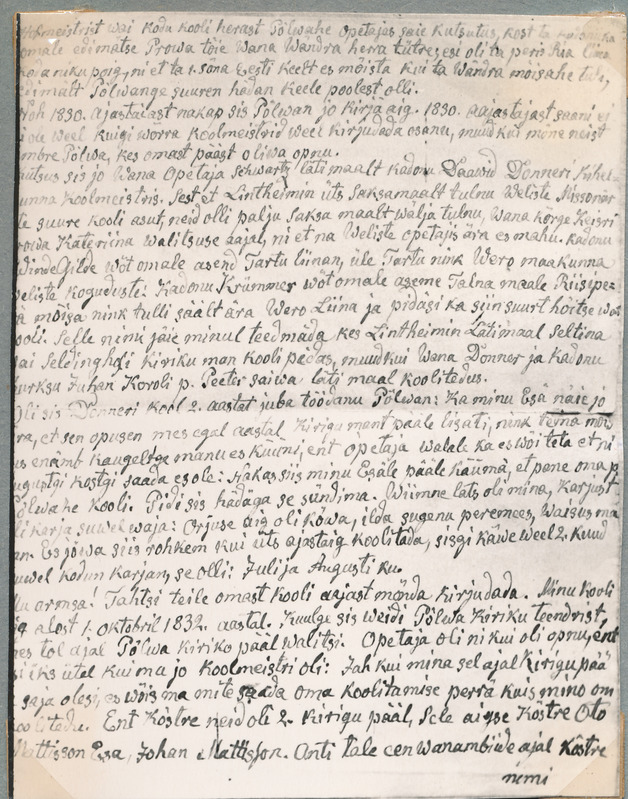 wai Kodu kooli herast Põlwahe opetajas saie kutsutus, kost ta
omale edimatse Prowa tõie Wana Wandra herra tütre, sesi oli ta peris hia
niku poig, ni et ta 1. sõna Eesti keelt es mõista kui ta Wändra mõisahe tulli,
edimalt Põlwange suuren hädan keele poolest olli.
Noh 1830. ajastajast nakap sis Põlwan jo kirja aig. 1830. aajastajast saani ei
ole weel kuigi worra koolmeistrid weel kirjudada osanu, muud kui mõne neist
Põlwa, kes omast pääst oliwa opnu.
sis jo Wana Opetaja Schwartz läti maalt kadonu Daawid Donneri
koolmeistris. Sest et Lintheimin üts Saksamaalt tulnu Weliste Missonär
suure kooli asut, neid olli palju Saksa maalt wälja tulnu, Wana korge Keisri
Käteriina walitsuse aajal, ni et na Weliste opetajis ära es mahu. Kadonu
Gilde wõt omale asend Tartu liinan, üle Tartu nink Wero maakunna
weliste kogudusti: Kadonu Krümmer wõt omale aseme Talna maale Riisipe=
mõisa nink tulli säält ära Wero Liina ja pidasi ka siin suurt hõitse
kooli. Selle nimi jäie minul teedmäda kes Lintheimin Läti maal Seltina
Kiriku man kooli pedas, muud kui Wana Donner ja kadonu
Juhan Koroli p. Peeter saiwa läti maal koolitedus.
Oli sis Donneri kool 2. aastat juba töödanu Põlwan: Ka minu Esä näie jo
ra, et sen opusen mes egal aastal Kirigu mant pääle lisati, nink teina
us enämb kaugelt manu es küüni, ent opetaja walale ka es woi teta et ni
kostgi saada es ole: Hakas siis minu Esäle pääle käumä, et pane oma p.
Põlwahe kooli. Pidi sis hädaga se sündima. Wiimne lats oli mina, karjust
karja suwel waja: Orjuse aig oli kõwa, ilda sugenu peremees, Waisus ma
an. Es jõwa siis rohkem kui üts ajastaig koolitada, sisgi käwe weel 2. kuud
suwel kodun karjan, se olli: Julija Augusti ku.
armsa! Tahtsi teile omast kooli aajast mõnda kirjudada. Minu kooli
alost 1. oktobril 1832. aastal. Kuulge sis weidi Põlwa Kiriku teendrist,
mes tol ajal Põlwa kiriko pääl walitsi. Opetaja oli ni kui oli opnu, ent
üks ütel kui mu jo koolmeistri oli: Jah kui mina sel ajal Kirigu pää
saja olesi, es wõis ma mite saada oma koolitamise perrä kuis mino om
koolitedu. Ent Köstre neid oli 2. kirigu pääl, Sele aigse Köstre Oto
Mattisson Essa, Johan Mattisson. Anti tale een wanambide ajal Köstre
nimi